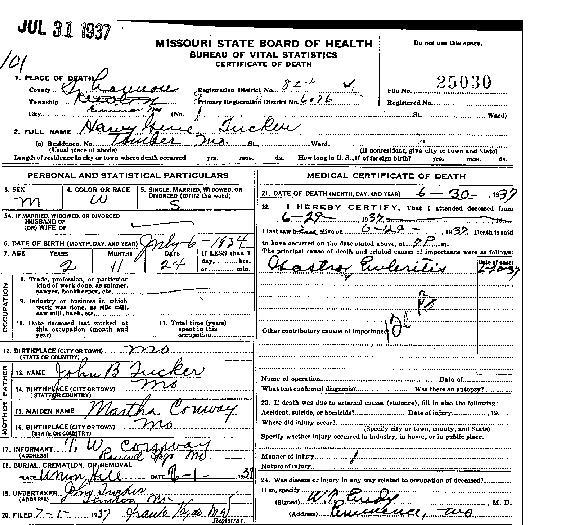 JUL 31 1937
MISSOURI STATE BOARD OF HEALTH
BUREAU OF VITAL STATISTICS
CERTIFICATE OF DEATH
Do not use this space.
101
1. PLACE OF DEATH
County
Registration District No.
File No. 25030
Township
Primary Registration District No. 6076
Registered No.
City
No.
St.
Ward)
2. FULL NAME Tucker
(a) Residence. No. Mo. St. Ward.
(Usual place of abode) (If nonresident, give city or town and State)
Length of residence in city or town where death occurred yrs. mos. ds. How long in U. S., if of foreign birth? yrs. mos. ds.
PERSONAL AND STATISTICAL PARTICULARS
3. SEX
4. COLOR OR RACE
5. SINGLE, MARRIED, WIDOWED, OR DIVORCED (write the word)
M W S
5A. IF MARRIED, WIDOWED, OR DIVORCED
HUSBAND OF
(OR) WIFE OF
6. DATE OF BIRTH (MONTH, DAY, AND YEAR) July 6-1934
7. AGE YEARS MONTHS DAYS If LESS than 1 day, hrs. or min.
2 11 24
OCCUPATION
8. Trade, profession, or particular kind of work done, as spinner, sawyer, bookkeeper, etc.
9. Industry or business in which work was done, as silk mill, saw mill, bank, etc.
10. Date deceased last worked at this occupation (month and year)
11. Total time (years) spent in this occupation
12. BIRTHPLACE (CITY OR TOWN) Mo
(STATE OR COUNTRY)
FATHER
13. NAME John B Tucker
14. BIRTHPLACE (CITY OR TOWN) Mo
(STATE OR COUNTRY)
MOTHER
15. MAIDEN NAME Martha Conway
16. BIRTHPLACE (CITY OR TOWN) Mo
(STATE OR COUNTRY)
17. INFORMANT T. W. Conway
(ADDRESS) Mo
18. BURIAL, CREMATION, OR REMOVAL
PLACE Union Hill DATE 7-1-1937
19. UNDERTAKER
(ADDRESS) Mo
20. FILED 7-1-1937
Registrar.
MEDICAL CERTIFICATE OF DEATH
21. DATE OF DEATH (MONTH, DAY, AND YEAR) 6-30-1937
22. I HEREBY CERTIFY, That I attended deceased from
6-29 1937
I last saw alive on 6-29 1937 Death is said
to have occurred on the date stated above, at
The principal cause of death and related causes of importance were as follows:
Date of onset
Other contributory causes of importance:
Name of operation Date of
What test confirmed diagnosis? Was there an autopsy?
23. If death was due to external causes (violence), fill in also the following:
Accident, suicide, or homicide? Date of injury 19
Where did injury occur?
(Specify city or town, county, and State)
Specify whether injury occurred in industry, in home, or in public place.
Manner of injury
Nature of injury
24. Was disease or injury in any way related to occupation of deceased?
If so, specify
(Signed) M. D.
(Address) Eminence, Mo